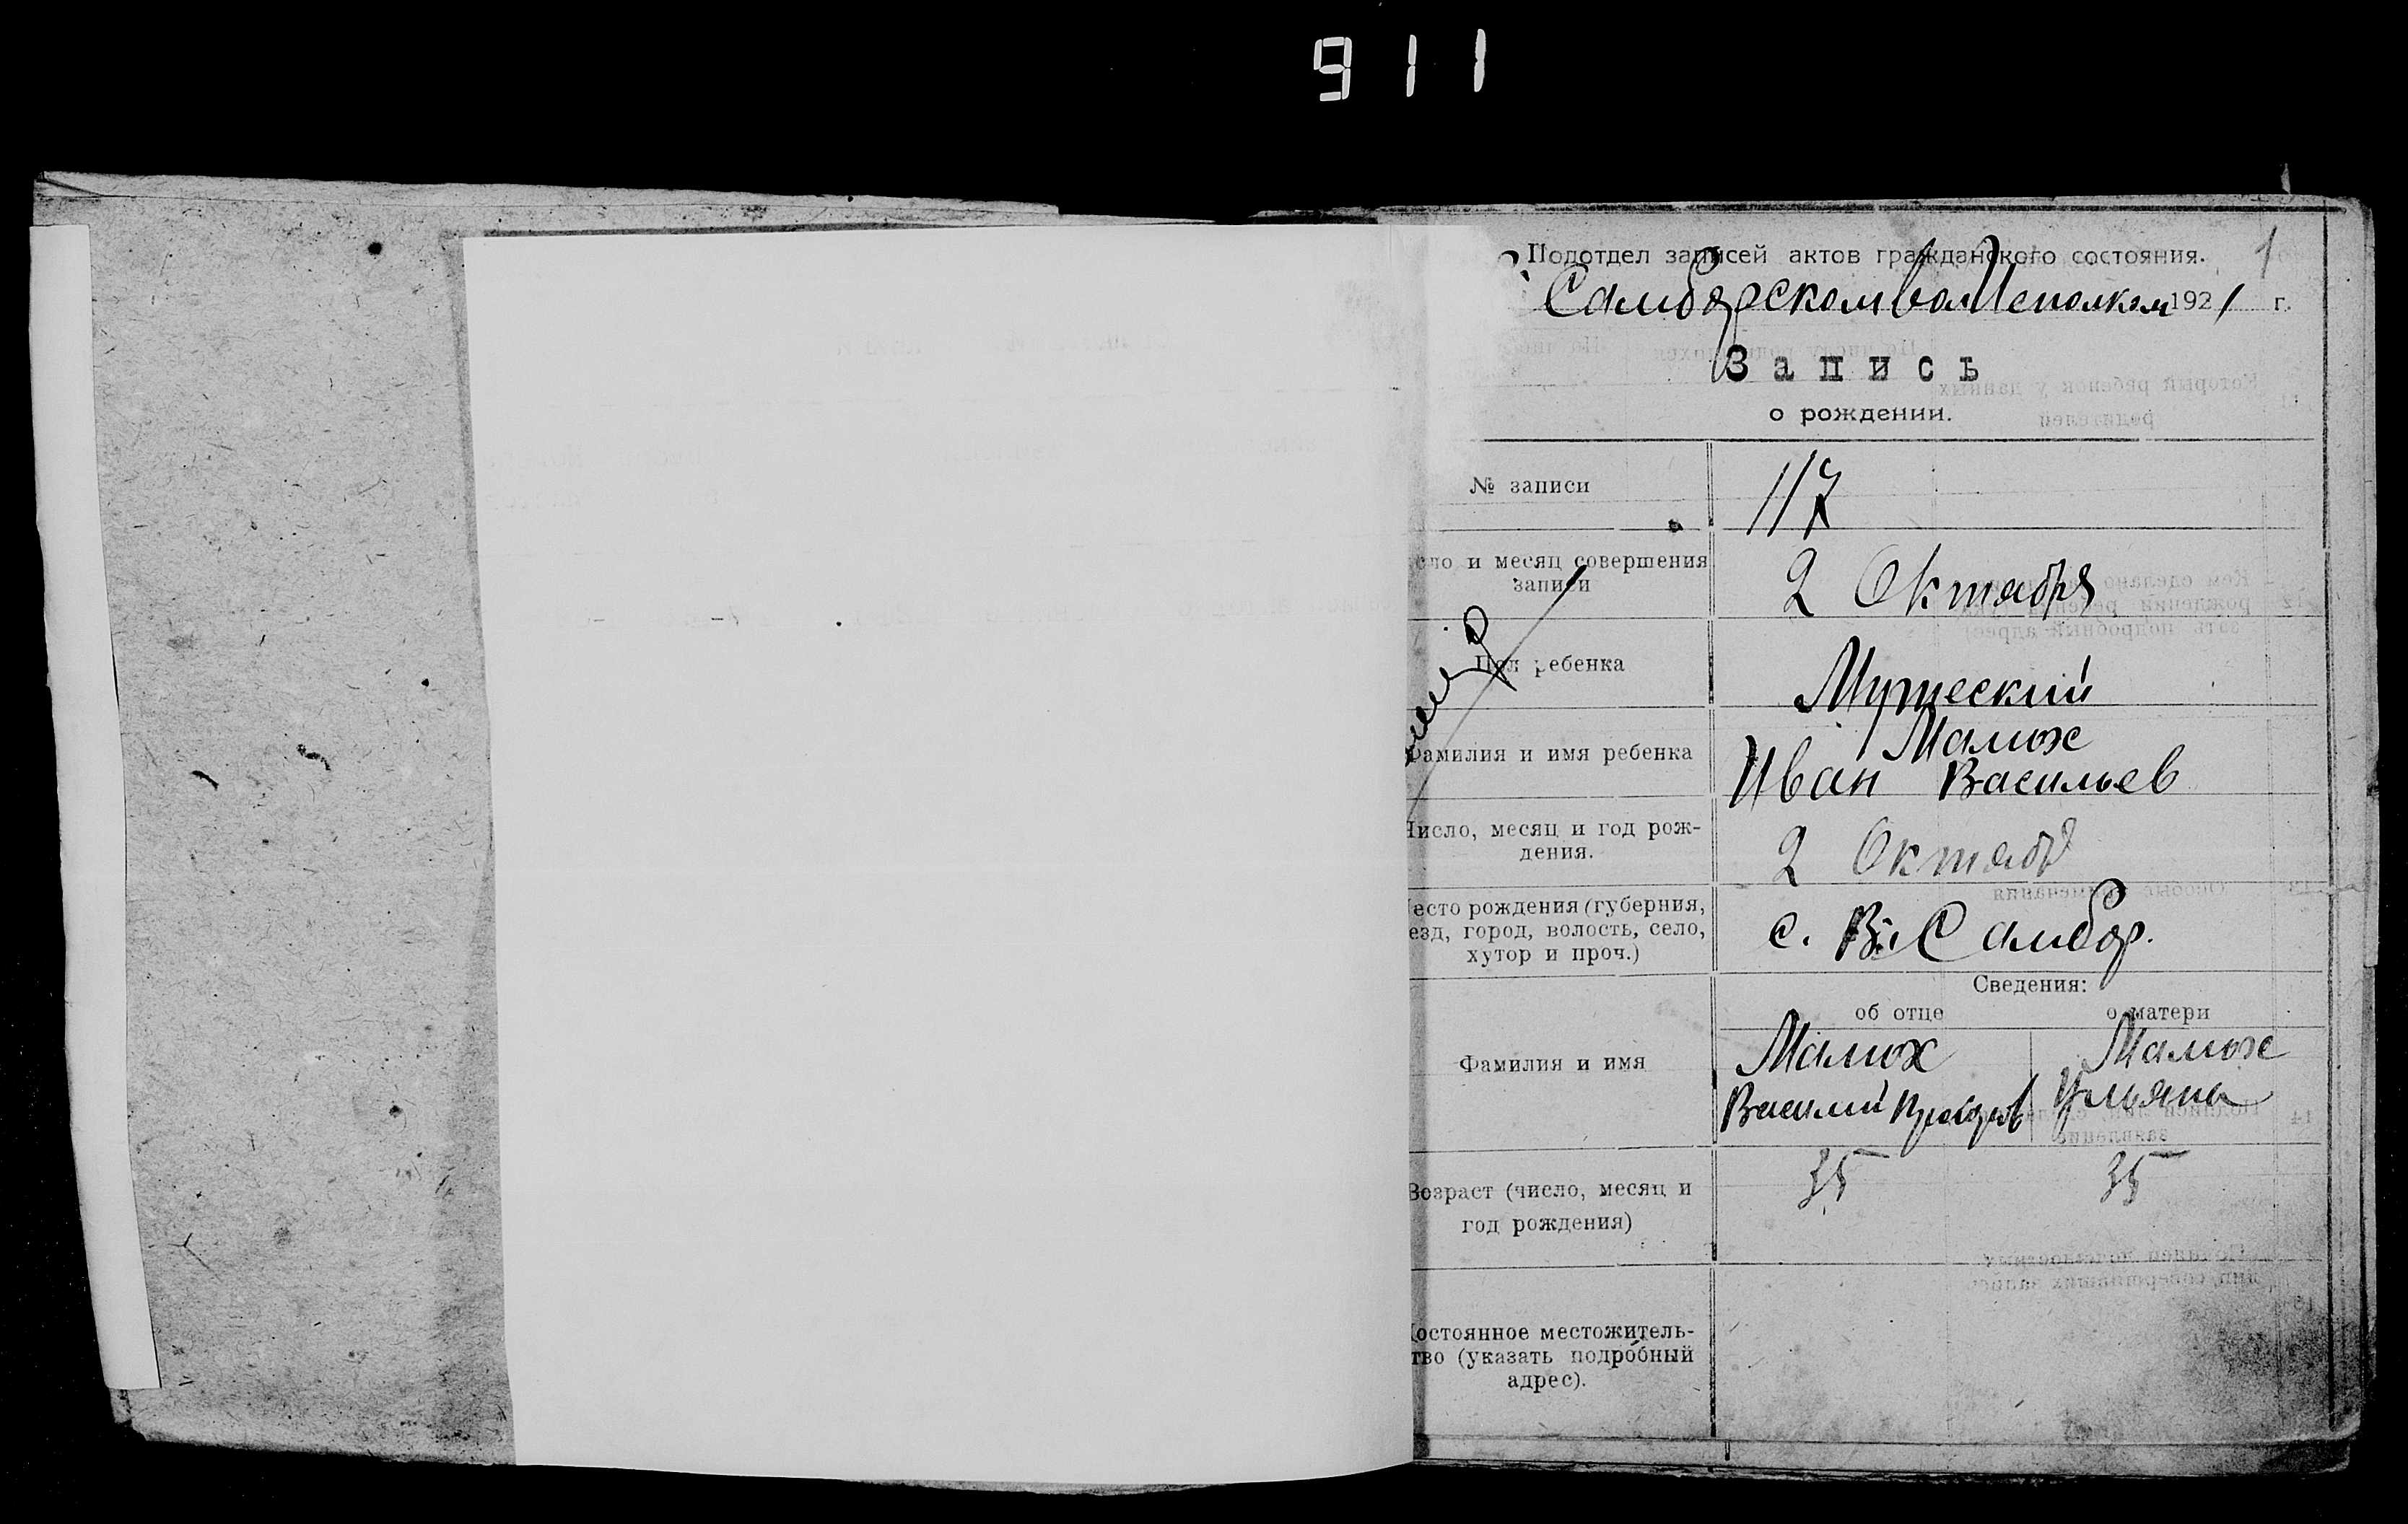 911
1
Подотдел записей актов гражданского состояния.
1921 г.
Запись
о рождении.
№ записи 117
сло и месяц совершения
записи
2 Октября
Пол ребенка
Мужеский
Малюх
Фамилия и имя ребенка
Иван Васильев
Число, месяц и год рож-
дения.
2 Октяб
есто рождения (губерния,
езд, город, волость, село,
хутор и проч.)
с. В. Самбор.
Сведения:
об отце о матери
Фамилия и имя
Малюх Малюх
Василий Ульяна
Возраст (число, месяц и
год рождения)
35 35
остоянное местожитель-
тво (указать подробный
адрес).